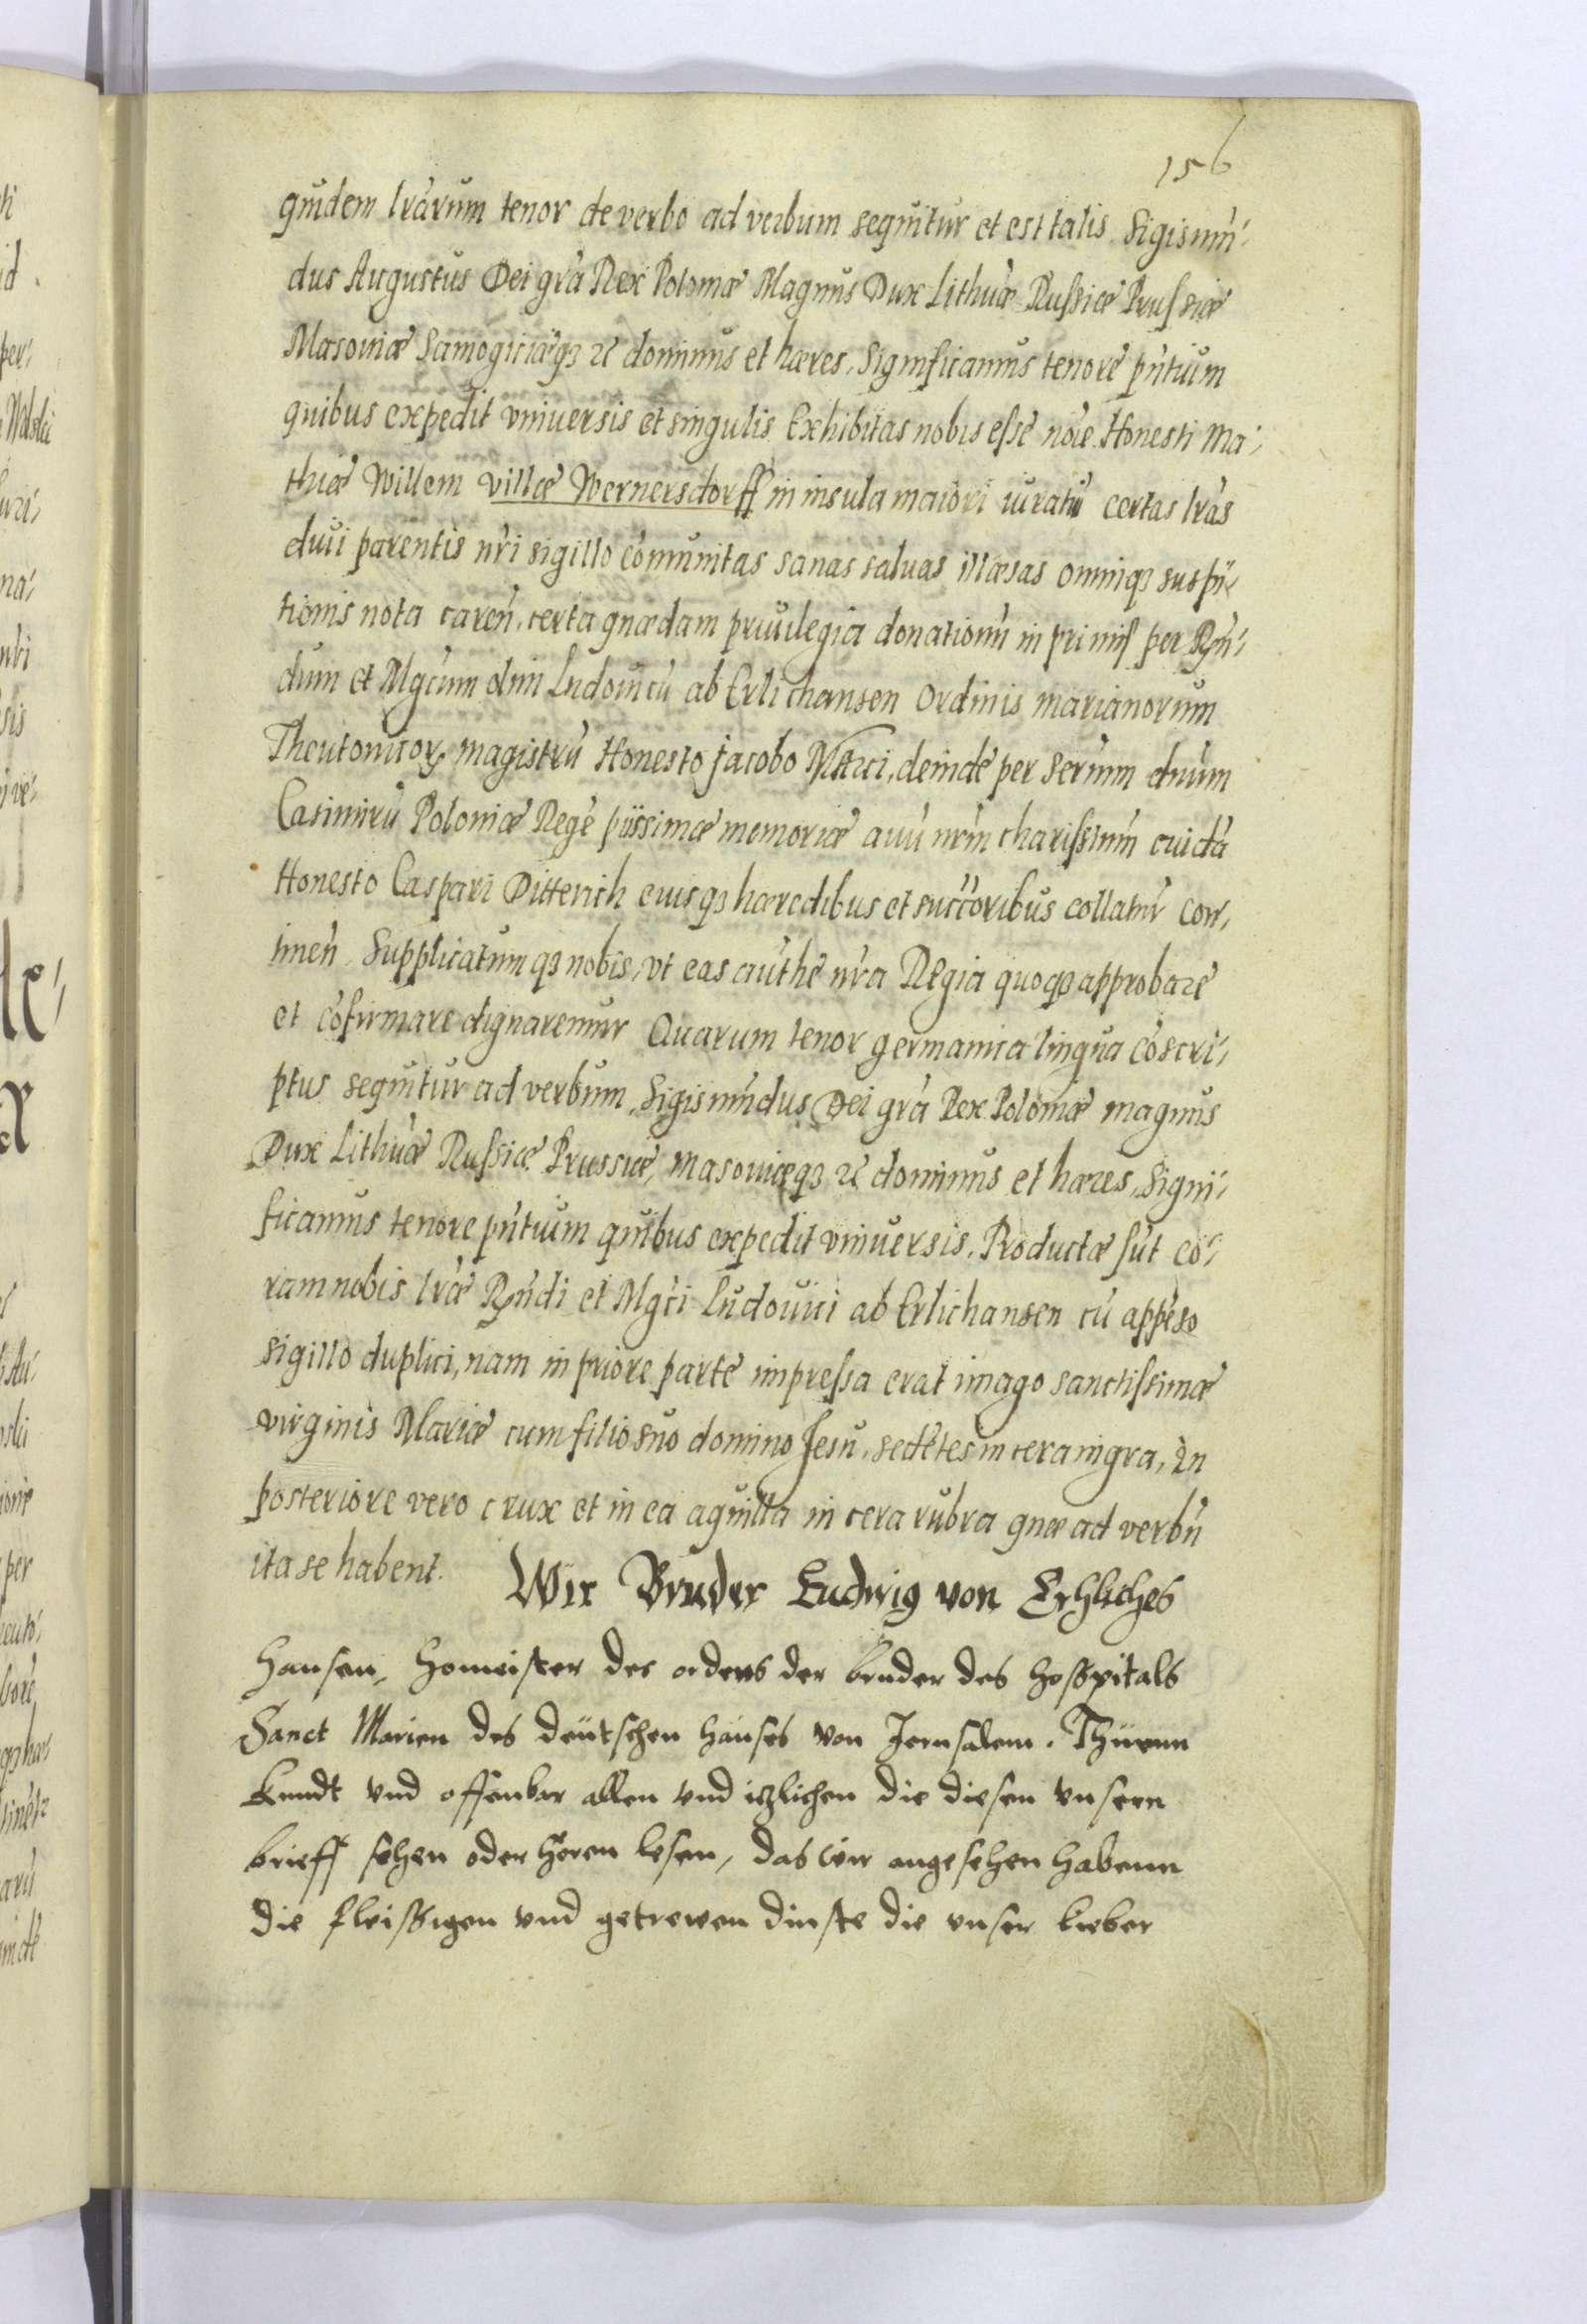 156
quidem lrarum tenor de verbo ad verbum sequitur et est talis. Sigismũ-
dus Augustus Dei grã Rex Polonæ Magnus Dux Lithuæ Russiæ Prussiæ
Masouiæ Samogitiæqʒ ꝛc dominus et hæres. Significamus tenore pñtium
quibus expedit vniuersis et singulis. Exhibitas nobis esse noĩe Honesti Ma-
thiæ Willem villæ Wernersdorff in insula maiori iurati certas lrãs
diui parentis nr̃i sigillo cõmunitas sanas saluas illæsas omniqʒ suspi-
tionis nota careñ. certa quædam priuilegia donationũ in primis per Rñ-
dum et Mgcum dnũ Ludouicũ ab Erlichansen Ordinis marianorum
Theutonicoꝝ magistrũ Honesto Jacobo Marci, deinde per Serm̃m dnũm
Casimirũ Poloniæ Regẽ piissimæ memoriæ auũ nr̃m charissimũ cuidã
Honesto Caspari Ditterich eiusqʒ hæredibus et succ̃oribus collatũ con-
tineñ. Supplicatumqʒ nobis, vt eas authẽ nr̃a Regia quoqʒ approbare
et cõfirmare dignaremur Quarum tenor germanica lingua cõscri-
ptus sequitur ad verbum. Sigismũdus Dei grã Rex Poloniæ magnus
Dux Lithuæ Russiæ Prussiæ, Masouiæqʒ ꝛc dominus et hæres. Signi-
ficamus tenore pñtium quibus expedit vniuersis. Productæ sũt co-
ram nobis lræ Rñdi et Mgci Ludouici ab Erlichansen cũ appẽso
sigillo duplici, nam in priore parte impressa erat imago sanctissimæ
virginis Mariæ cum filio suo domino Jesu, sedẽtes in cera nigra, In
posteriore vero crux et in ea aquilla in cera rubra quæ ad verbũ
ita se habent. Wir Bruder Ludwig von Erhliches
hausen, Homeister des ordens der bruder des hosspitals
Sanct Marien des deutschen hauses von Jerusalem. Thuenn
kundt vnd offenbar allen vnd itzlichen die diesen vnsern
brieff sehen oder horen lesen, das wir angesehen habenn
die fleissigen vnd getrewen dinste die vnser lieber